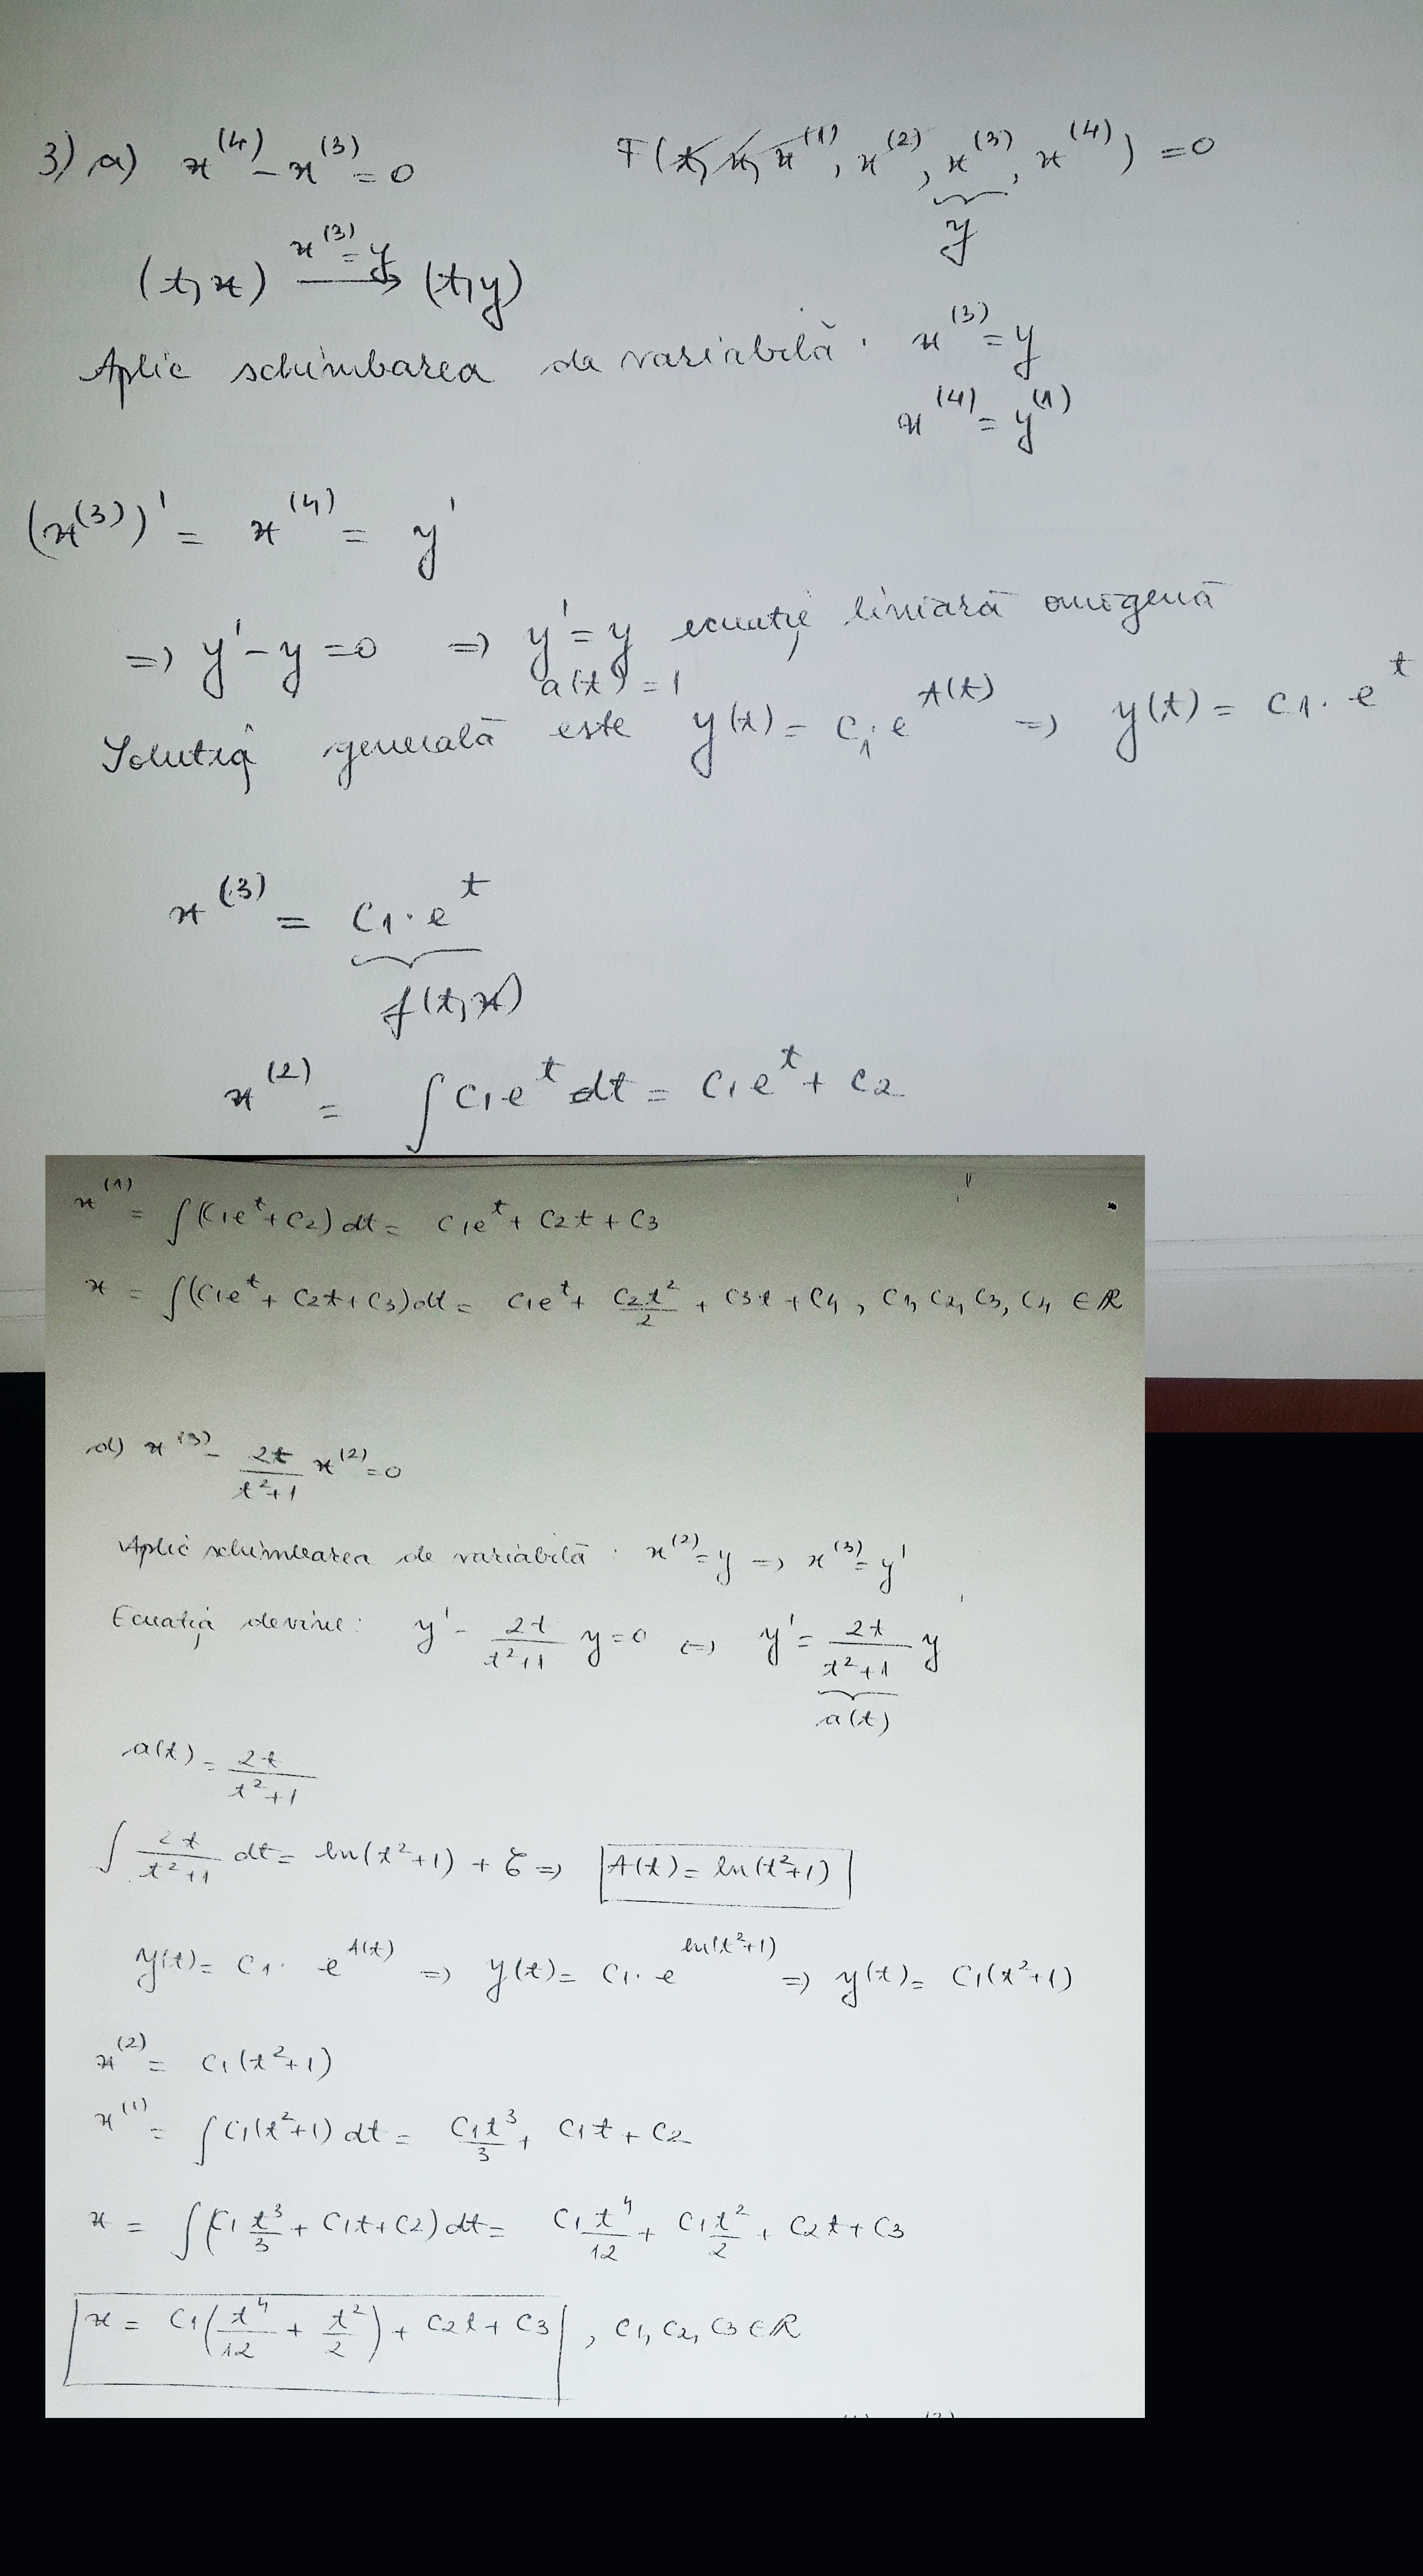 3) a) x^(4) - x^(3) = 0    F(t, x, x^(1), x^(2), x^(3), x^(4)) = 0
y
(t, x) —x^(3) = y→ (t, y)
Aplic schimbarea de variabilă: x^(3) = y
x^(4) = y^(1)
(x^(3))' = x^(4) = y'
=> y' - y = 0 => y' = y ecuație liniară omogenă
a(t) = 1
Soluția generală este y(t) = C1·e^A(t) => y(t) = C1·e^t
x^(3) = C1·e^t
f(t, x)
x^(2) = ∫ C1e^t dt = C1e^t + C2
x^(1) = ∫(C1e^t + C2) dt = C1e^t + C2t + C3
x = ∫(C1e^t + C2t + C3) dt = C1e^t + C2t²/2 + C3t + C4, C1, C2, C3, C4 ∈ ℝ
d) x^(3) - 2t/(t²+1) x^(2) = 0
Aplic schimbarea de variabilă: x^(2) = y => x^(3) = y'
Ecuația devine: y' - 2t/(t²+1) y = 0 <=> y' = 2t/(t²+1) y
a(t)
a(t) = 2t/(t²+1)
∫ 2t/(t²+1) dt = ln(t²+1) + C => A(t) = ln(t²+1)
y(t) = C1·e^A(t) => y(t) = C1·e^ln(t²+1) => y(t) = C1(t²+1)
x^(2) = C1(t²+1)
x^(1) = ∫ C1(t²+1) dt = C1t³/3 + C1t + C2
x = ∫(C1 t³/3 + C1t + C2) dt = C1t⁴/12 + C1t²/2 + C2t + C3
x = C1(t⁴/12 + t²/2) + C2t + C3, C1, C2, C3 ∈ ℝ